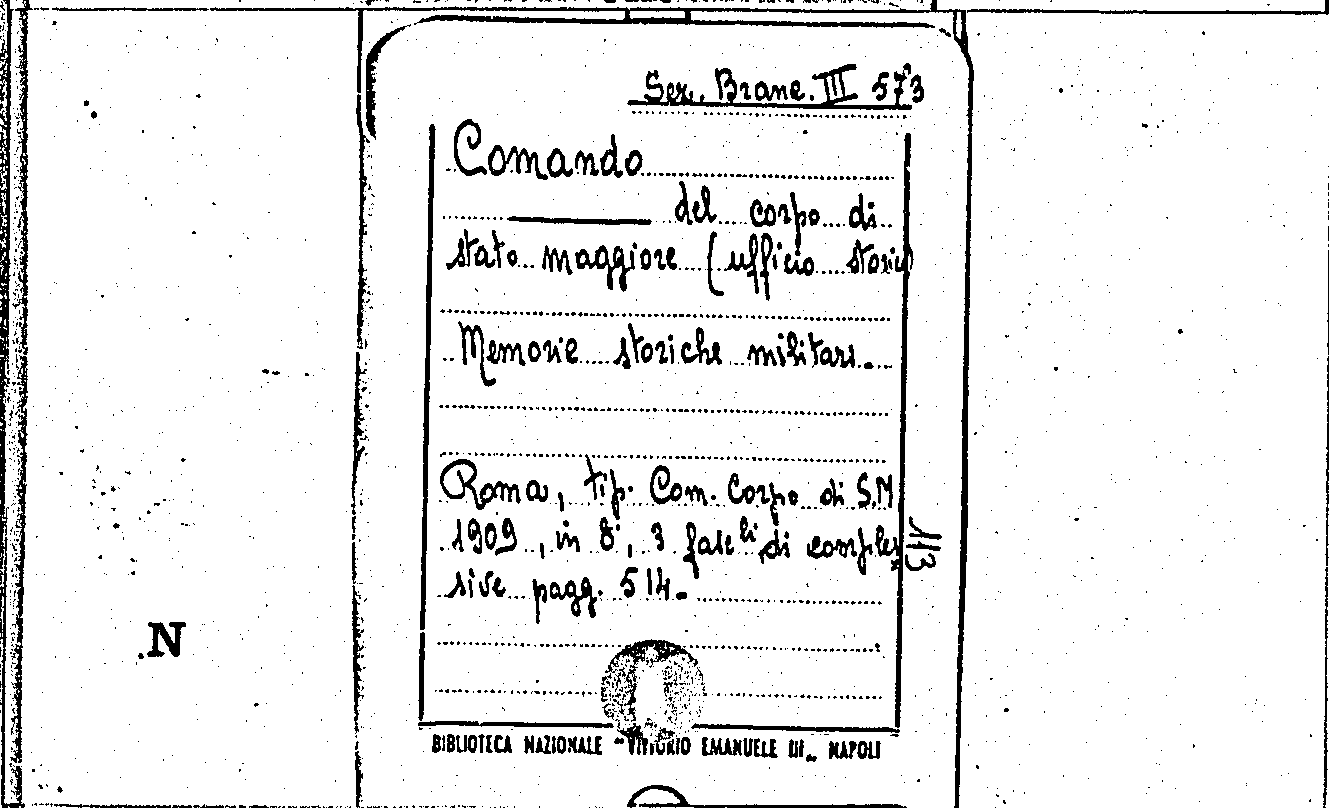 Ser. Branc. III 573
Comando
del corpo di
stato maggiore (ufficio storic)
Memorie storiche militari.
Roma, tip. Com. Corpo di S.M
1909, in 8°, 3 fascli di comples
sive pagg. 514.
113
N
BIBLIOTECA NAZIONALE "VITTORIO EMANUELE III„ NAPOLI